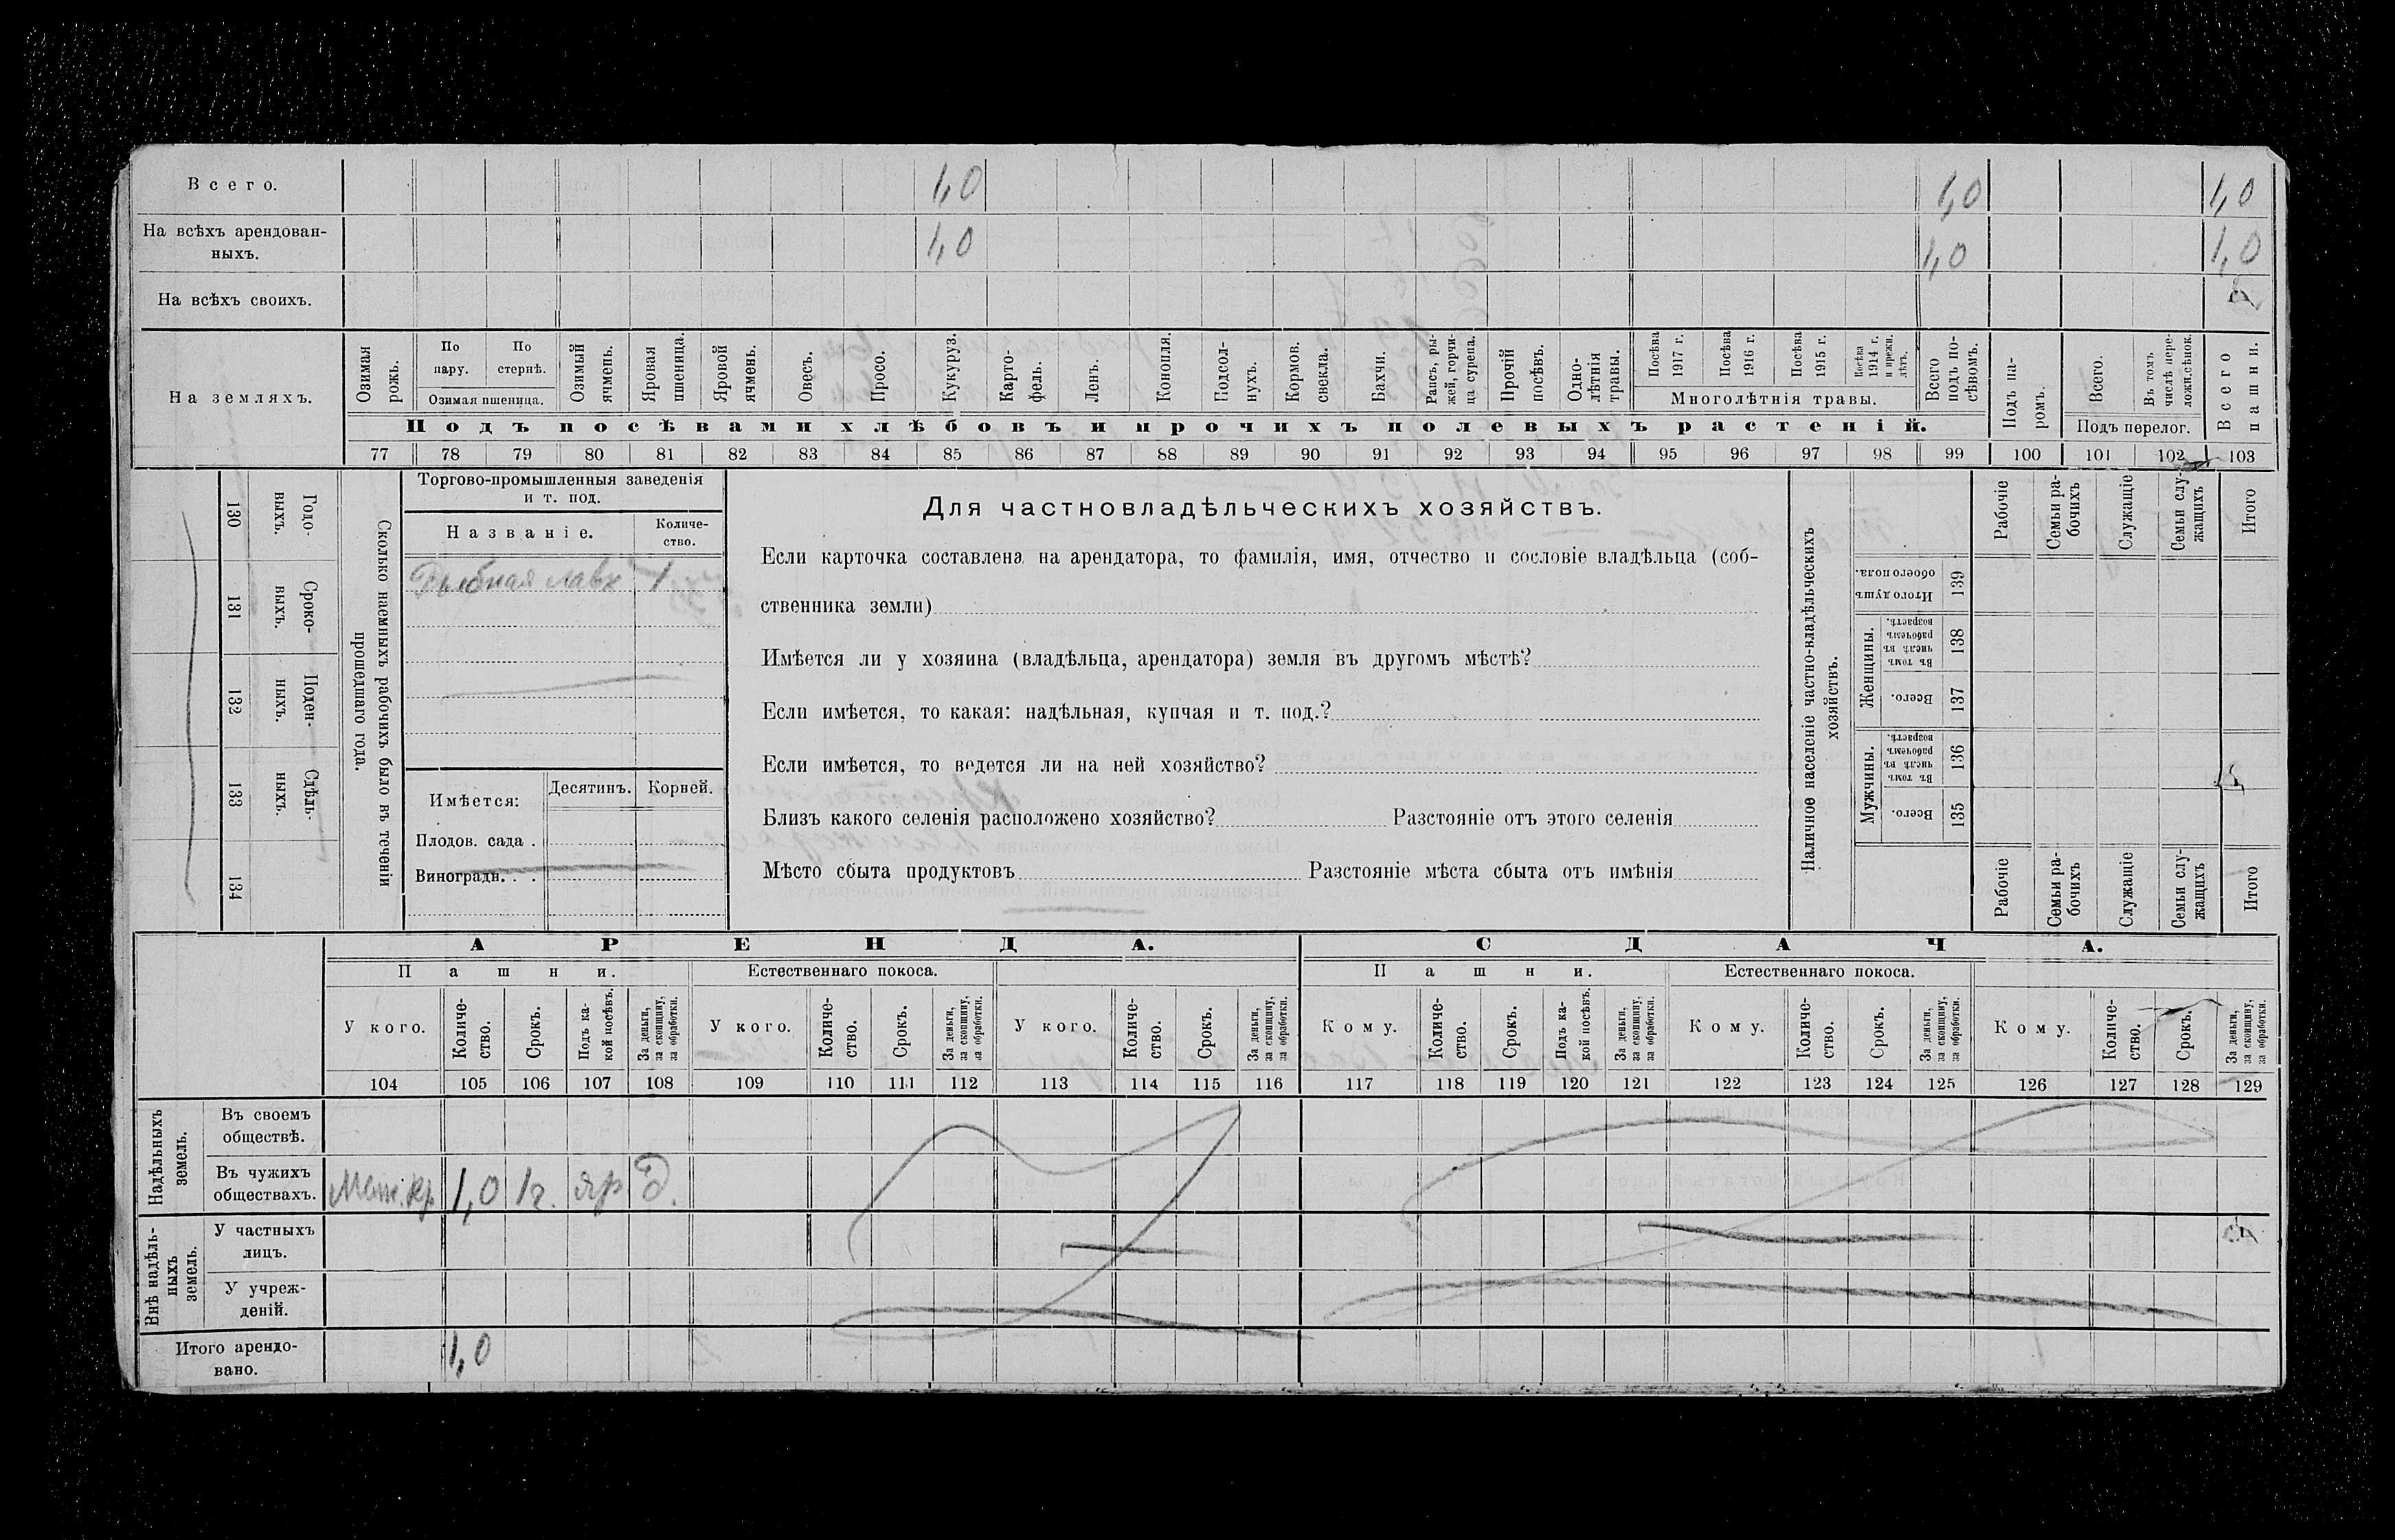 Всего. 1,0 1,0 1,0
На всѣхъ арендован-
ныхъ. 1,0 1,0 1,0
На всѣхъ своихъ.
На земляхъ.
Озимая рожь.
По пару.
По стернѣ.
Озимая пшеница.
Озимый ячмень.
Яровая пшеница.
Яровой ячмень.
Овесъ.
Просо.
Кукуруз.
Карто-
фель.
Ленъ.
Конопля.
Подсол-
нухъ.
Кормов.
свекла.
Бахчи.
Рапсъ, ры-
жей, горчи-
ца сурепа.
Прочій
посѣвъ.
Одно-
лѣтнія
травы.
Посѣва
1917 г.
Посѣва
1916 г.
Посѣва
1915 г.
Посѣва
1914 г.
и прежн.
лѣтъ.
Многолѣтнія травы.
Всего
подъ по-
сѣвомъ.
Подъ па-
ромъ.
Всего.
Въ томъ
числѣ пере-
ложн.сѣнок.
Подъ перелог.
Всего
пашни.
Подъ посѣвами хлѣбовъ и прочихъ полевыхъ растеній.
77 78 79 80 81 82 83 84 85 86 87 88 89 90 91 92 93 94 95 96 97 98 99 100 101 102 103
130
Годо-
выхъ.
131
Сроко-
выхъ.
132
Поден-
ныхъ.
133
Сдѣль-
ныхъ.
134
Сколько наемныхъ рабочихъ было въ теченіи
прошедшаго года.
Торгово-промышленныя заведенія
и т. под.
Названіе.
Количе-
ство.
Рыбная лавк 1
Имѣется:
Десятинъ. Корней.
Плодов. сада .
Виноградн. . .
Для частновладѣльческихъ хозяйствъ.
Если карточка составлена на арендатора, то фамилія, имя, отчество и сословіе владѣльца (соб-
ственника земли)
Имѣется ли у хозяина (владѣльца, арендатора) земля въ другомъ мѣстѣ?
Если имѣется, то какая: надѣльная, купчая и т. под.?
Если имѣется, то ведется ли на ней хозяйство?
Близъ какого селенія расположено хозяйство? Разстояніе отъ этого селенія
Мѣсто сбыта продуктовъ Разстояніе мѣста сбыта отъ имѣнія
Наличное населеніе частно-владѣльческихъ
хозяйствъ.
Итого душъ
обоего пола.
139
Женщины.
Въ томъ
числѣ въ
рабочемъ
возрастѣ.
138
Всего.
137
Мужчины.
Въ томъ
числѣ въ
рабочемъ
возрастѣ.
136
Всего.
135
Рабочіе
Семьи ра-
бочихъ
Служащіе
Семьи слу-
жащихъ
Итого
Рабочіе
Семьи ра-
бочихъ
Служащіе
Семьи слу-
жащихъ
Итого
АРЕНДА. СДАЧА.
Пашни. Естественнаго покоса. Пашни. Естественнаго покоса.
У кого.
Количе-
ство.
Срокъ.
Подъ ка-
кой посѣвъ.
За деньги,
за скопщину,
за обработки.
У кого.
Количе-
ство.
Срокъ.
За деньги,
за скопщину,
за обработки.
У кого.
Количе-
ство.
Срокъ.
За деньги,
за скопщину,
за обработки.
Кому.
Количе-
ство.
Срокъ.
Подъ ка-
кой посѣвъ.
За деньги,
за скопщину,
за обработки.
Кому.
Количе-
ство.
Срокъ.
За деньги,
за скопщину,
за обработки.
Кому.
Количе-
ство.
Срокъ.
За деньги,
за скопщину,
за обработки.
104 105 106 107 108 109 110 111 112 113 114 115 116 117 118 119 120 121 122 123 124 125 126 127 128 129
Надѣльныхъ
земель.
Въ своемъ
обществѣ.
Въ чужихъ
обществахъ. кр. 1,0 1г. яр д.
Внѣ надѣль-
ныхъ
земель.
У частныхъ
лицъ.
У учреж-
деній.
Итого арендо-
вано. 1,0